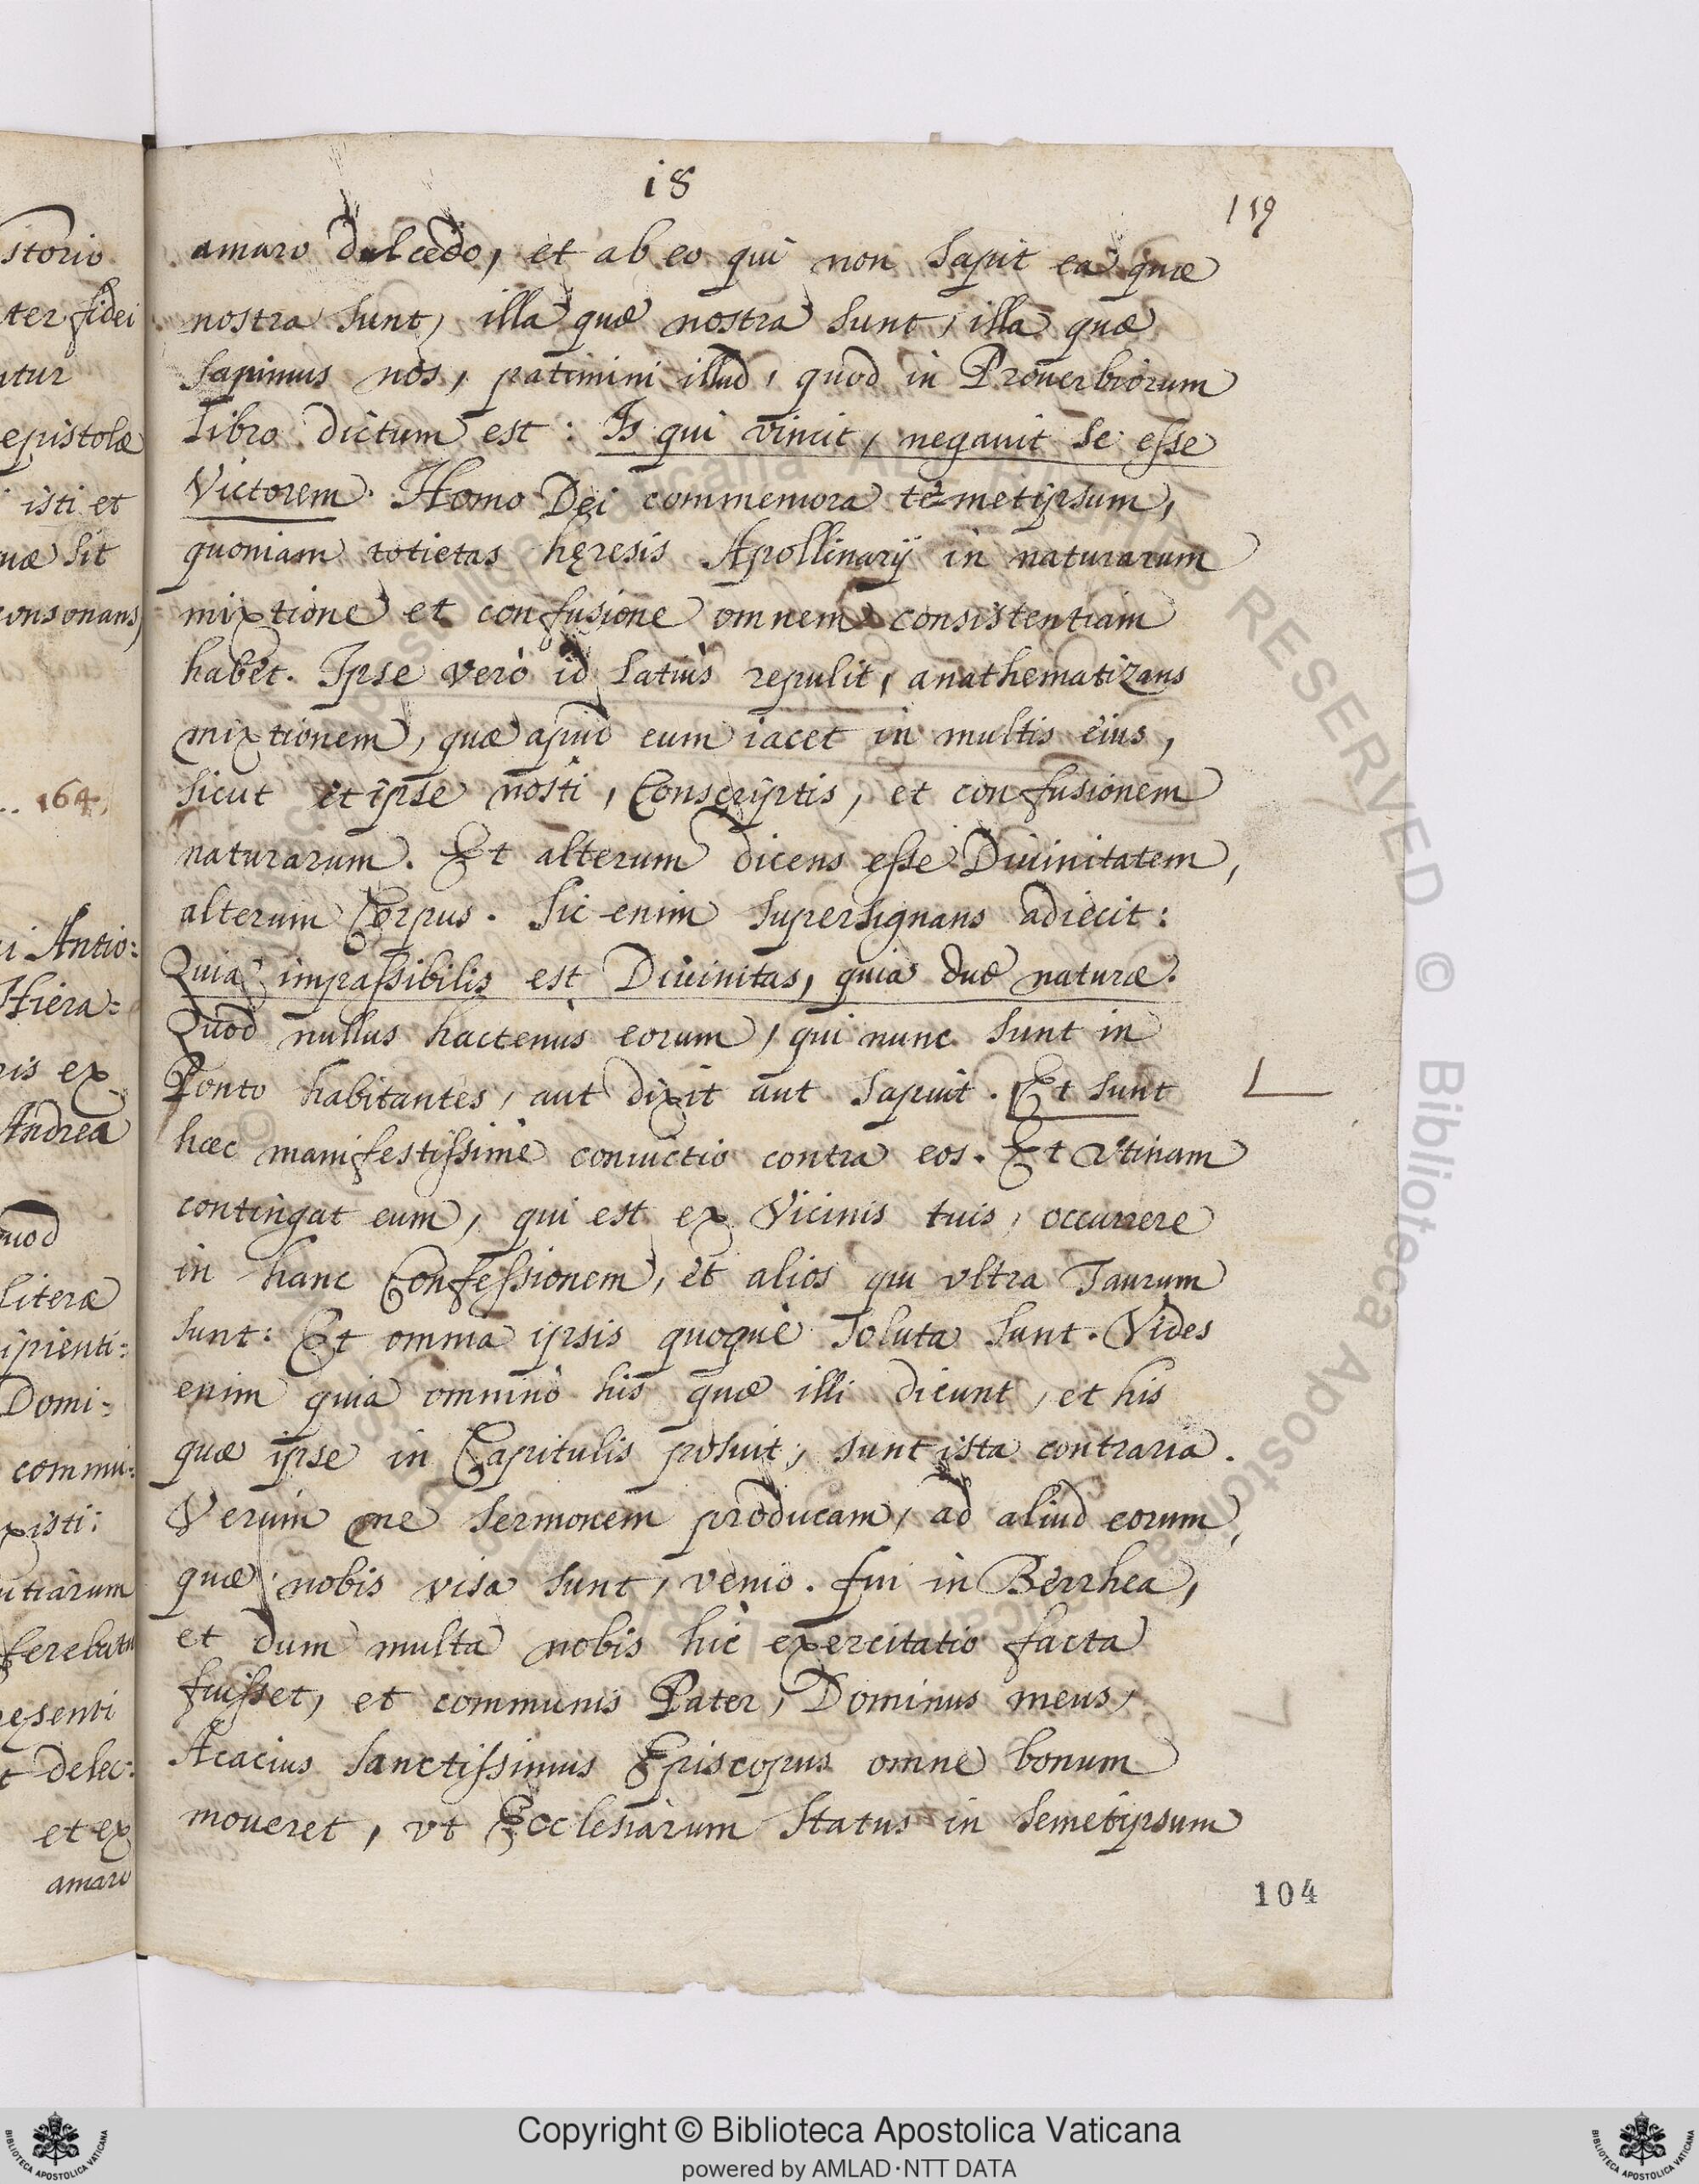 18
159
amaro dulcedo, et ab eo qui non sapit ea quæ
nostra sunt, illa quæ nostra sunt, illa quæ
sapimus nos, patimini illud, quod in Prouerbiorum
Libro dictum est: Is qui vincit, negauit se esse
Victorem. Homo Dei commemora te-metipsum,
quoniam totietas hęresis Apollinarij in naturarum
mixtione et confusione omnem consistentiam
habet. Ipse verò id satiùs repulit, anathematizans
mixtionem, quæ apud eum iacet in multis eius,
sicut et ipse nosti, Conscriptis, et confusionem
naturarum. Et alterum dicens esse Diuinitatem,
alterum Corpus. Sic enim supersignans adiecit:
Quia impassibilis est Diuinitas, quia duæ naturæ.
Quod nullus hactenùs eorum, qui nunc sunt in
Ponto habitantes, aut dixit aut sapuit. Et sunt
hæc manifestissimè conuictio contra eos. Et vtinam
contingat eum, qui est ex Vicinis tuis, occurrere
in hanc Confessionem, et alios qui vltra Taurum
sunt: Et omnia ipsis quoquè soluta sunt. Vides
enim quia omninò his quæ illi dicunt, et his
quæ ipse in Capitulis posuit, sunt ista contraria.
Verùm ne sermonem producam, ad aliud eorum,
quæ nobis visa sunt, venio. fui in Berrhea,
et dum multa nobis hic exercitatio facta
fuisset, et communis Pater, Dominus meus,
Acacius sanctissimus Episcopus omne bonum
moueret, vt Ecclesiarum status in semetipsum
104
storio
ter fidei
ntur
epistolæ
isti et
uæ sit
consonans,
164,
i Antio:
Hiera:
ris ex
Andrea
uod
Literæ
ipienti:
Domi:
commu:
xisti:
utiarum
esenti
t delec:
et ex
amaro
Copyright © Biblioteca Apostolica Vaticana
powered by AMLAD·NTT DATA